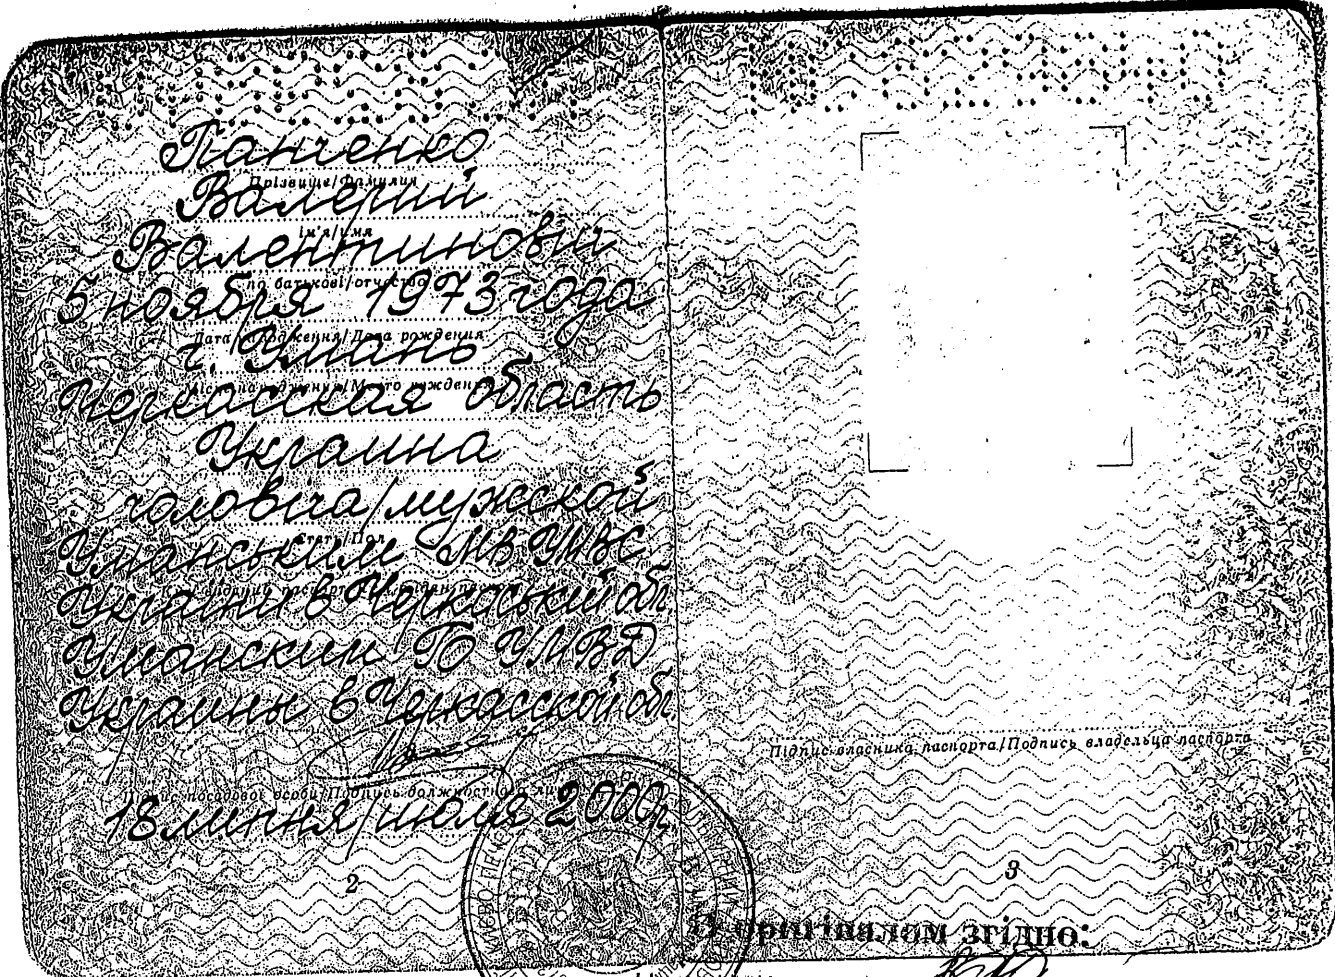 Панченко
Прізвище/Фамилия
Валерий
ім'я/имя
Валентинович
по батькові/отчество
5 ноября 1973 года
Дата народження/Дата рождения
г. Умань
Місце народження/Место рождения
Черкасская область
Украина
чоловіча/мужской
Стать/Пол
Уманським МВ УМВС
України в Черкаській обл
Уманским ГО УМВД
Украины в Черкасской обл
Підпис посадової особи/Подпись должностного лица
18 липня/июля 2000р.
2
Підпис власника паспорта/Подпись владельца паспорта
3
З оригіналом згідно: